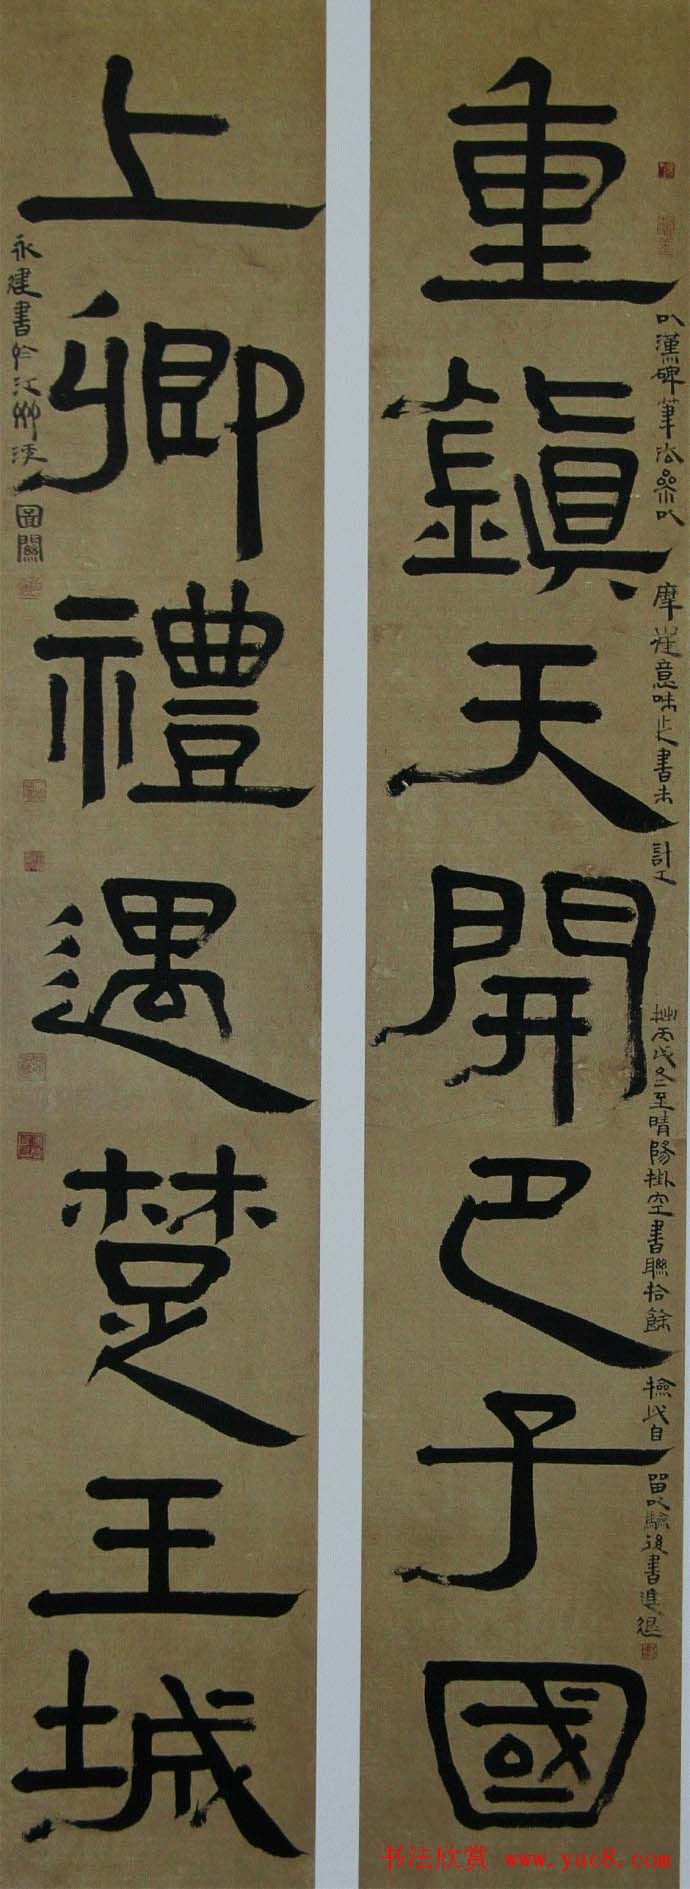 重鎮天開巴子國
上卿禮遇楚王城
以漢碑筆法參以
摩崖意味作書未
計工
拙丙戌冬至晴陽掛空書聯拾餘
檢此自
留以驗後書進退
永建書於江州漢
圖闕
书法欣赏 www.yac8.com